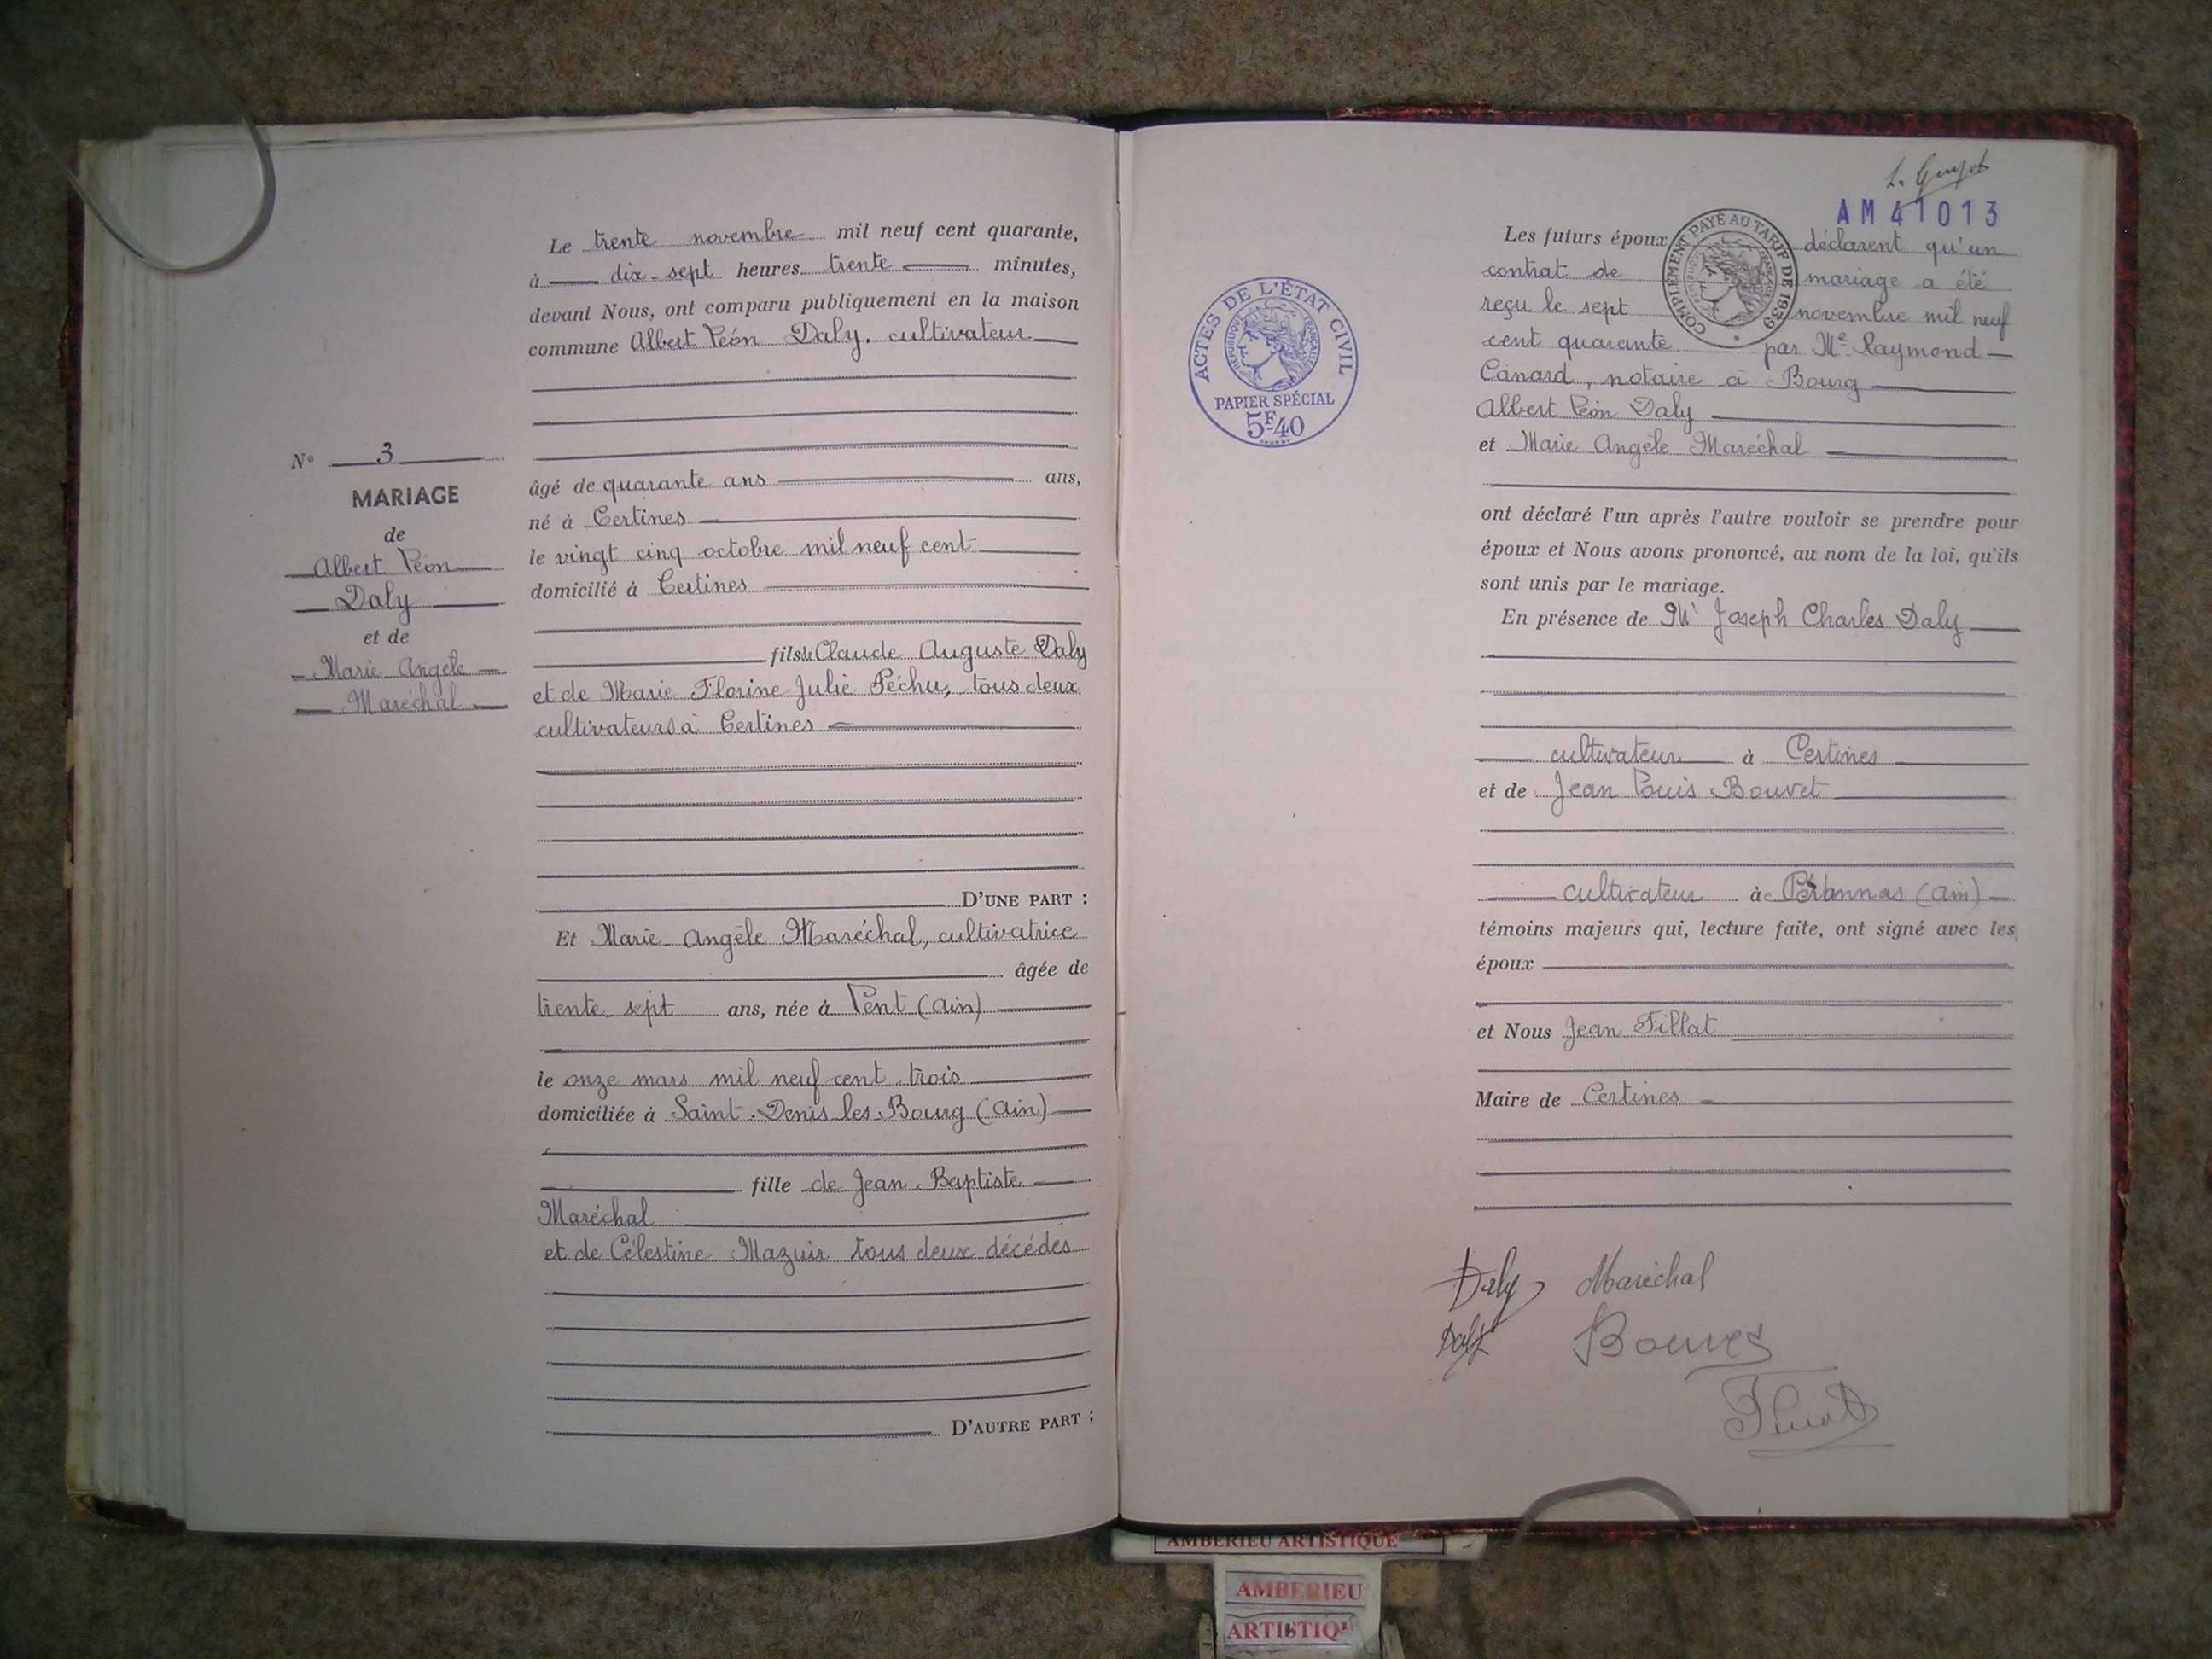 Le trente novembre mil neuf cent quarante,
à dix-sept heures trente minutes,
devant Nous, ont comparu publiquement en la maison
commune Albert Léon Daly, cultivateur
N° 3
MARIAGE
de
Albert Léon
Daly
et de
Marie Angèle
Maréchal
âgé de quarante ans ans,
né à Certines
le vingt cinq octobre mil neuf cent
domicilié à Certines
fils de Claude Auguste Daly
et de Marie Florine Julie Péchu, tous deux
cultivateurs à Certines
D'UNE PART :
Et Marie Angèle Maréchal, cultivatrice
âgée de
trente sept ans, née à Lent (Ain)
le onze mars mil neuf cent trois
domiciliée à Saint-Denis les Bourg (Ain)
fille de Jean Baptiste
Maréchal
et de Célestine Mazuir tous deux décédés
D'AUTRE PART :
AM 41013
ACTES DE L'ÉTAT CIVIL
RÉPUBLIQUE FRANÇAISE
PAPIER SPÉCIAL
5F40
COMPLÉMENT PAYÉ AU TARIF DE 1939
Les futurs époux déclarent qu'un
contrat de mariage a été
reçu le sept novembre mil neuf
cent quarante par Me Raymond
Canard, notaire à Bourg
Albert Léon Daly
et Marie Angèle Maréchal
ont déclaré l'un après l'autre vouloir se prendre pour
époux et Nous avons prononcé, au nom de la loi, qu'ils
sont unis par le mariage.
En présence de Mr Joseph Charles Daly
cultivateur à Certines
et de Jean Louis Bouvet
cultivateur à Péronnas (Ain)
témoins majeurs qui, lecture faite, ont signé avec les
époux
et Nous Jean Tillat
Maire de Certines
Daly Maréchal
Daly Bouvet
AMBERIEU ARTISTIQUE
AMBERIEU
ARTISTIQ